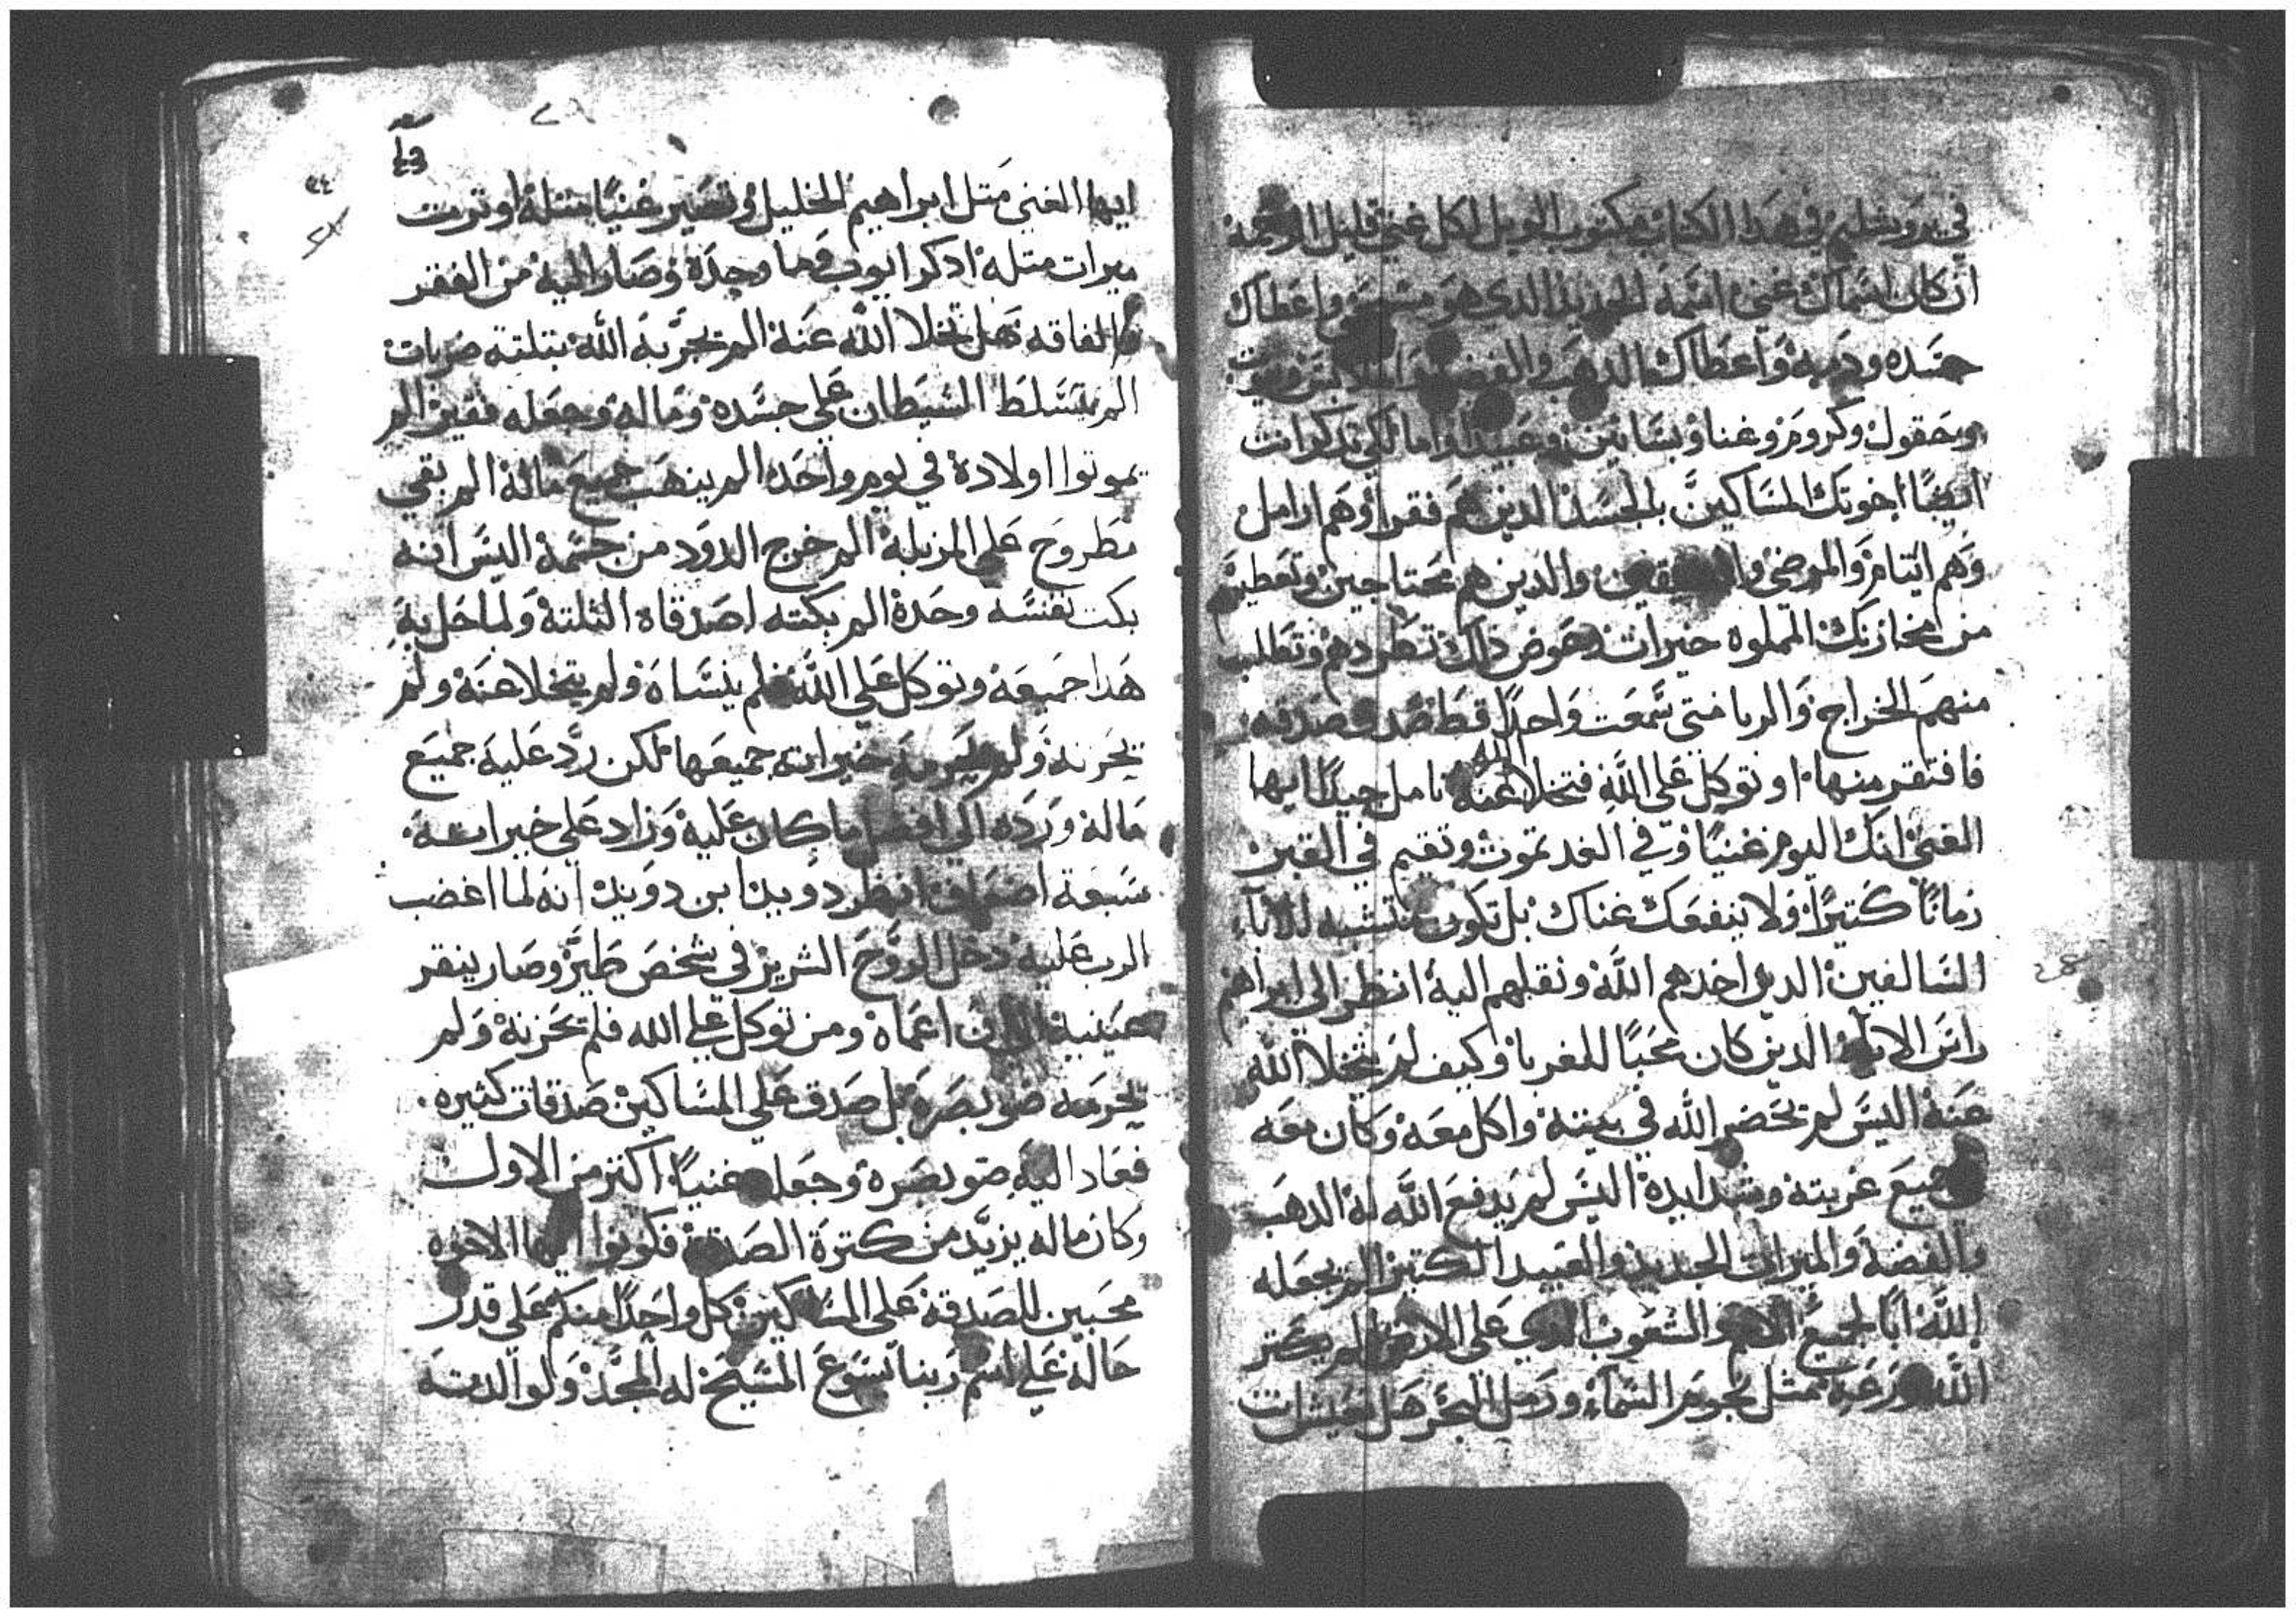 في يروشليم في هدا الكتاب مكتوب الويل لكل غني قليل الرحمة
ان كان اسماك غني اسمة الجديد الدي هو مسيحي واعطاك
جسده ودمة واعطاك الدهب والفضة
وحقول وكروم وغنا وبساتين وعبيد واما لكي تدكر انت
ايضًا اخوتك المساكين بالجسد الدين هم فقرا وهم ارامل
وهم ايتام والمرضى والدين هم محتاجين وتعطيهم
من مخازنك المملوه خيرات وعوض دلك تطردهم وتطالب
منهم الخراج والربا متى سمعت واحدًا قط تصدق صدقه
فافتقر منها او توكل على الله فتخلا الله عنه تامل جيدًا ايها
الغني انك اليوم غنيًا وفي الغد تموت وتقيم في القبر
زمانًا كتيرًا ولا ينفعك غناك بل تكون متشبه للاباء
السالفين الدين اخدهم الله ونقلهم اليه انظر الى ابراهيم
راس الابا الدين كان محبًا للغربا وكيف لم يتخلا الله
عنة اليس لم تحضر الله في بيتة واكل معة وكان معه
جميع غربتة وشدايدة اليس لم يدفع الله له الدهب
والفضة والميرات الجديد والعبيد الكتير الم يجعله
الله ابًا لجميع الامم والشعوب الدي على الارض الم يكتر
الله زرعه ممثل نجوم السماء ورمل البحر هل تعيش انت
٢٨
ايها الغني متل ابراهيم الخليل وتصير غنيًا متلة او ترت
ميرات متلة ادكر ايوب وما وجدة وصار الية من الفقر
والفاقه هل تخلا الله عنة الم يجربة الله بتلتة ضربات
الم يتسلط الشيطان على جسدة وماله وجعله فقير الم
يموتوا اولادة في يوم واحد الم ينهب جميع ماله الم بقي
مطروح على المزبلة الم خرج الدود من جسمة اليس انه
بكت نفسه وحدة الم بكته اصدقاه التلتة ولما حل بة
هدا جميعة وتوكل على الله فلم ينساه ولم يتخلا عنة ولم
يحزنه ولم يحرمة خيراته جميعها لكن رد علية جميع
مالة ورده الي افضل ما كان علية وزاد علي خيراته
سبعة اضعاف انظر دوبيد ابن دوبيد انه لما اغضب
الرب علية دخل الروح الشرير في شخص طير وصار ينقر
عينية الى ان اعماه ومن توكل علي الله فلم تحزنة ولم
يحرمه ضو بصره بل صدق علي المساكين صدقات كثيره
فعاد الية ضو بصرة وجعله غنيًا اكتر من الاول
وكان ماله يزيد من كترة الصدقة فكونوا ايها الاخوه
محبين للصدقة على المساكين كل واحدًا منكم علي قدر
حالة علي اسم ربنا يسوع المسيح له المجد ولوالدته